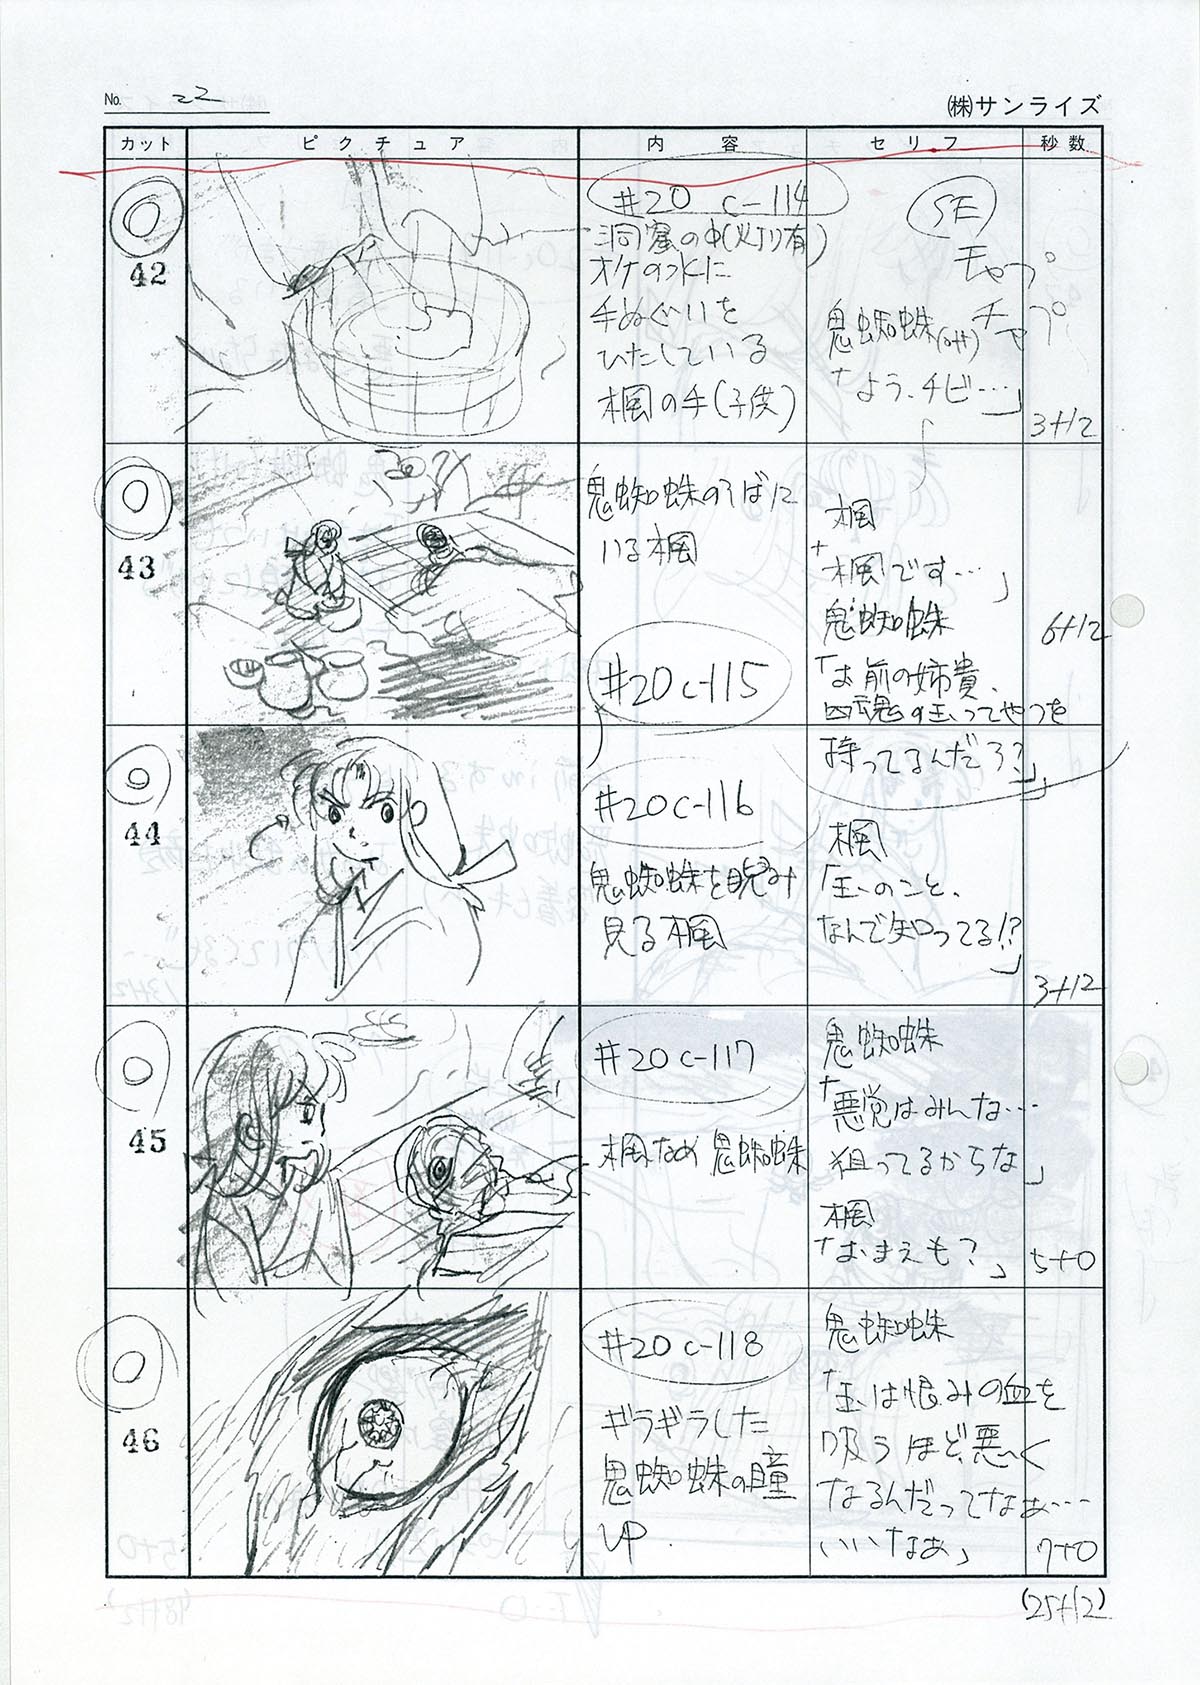 No. 22
(株)サンライズ
カット
ピクチュア
内容
セリフ
秒数
42
#20 c-114
洞窟の中(灯り有)
オケの水に
手ぬぐいを
ひたしている
楓の手(子供)
SE
チャプ
チャプ
鬼蜘蛛
「よう、チビ…」
3+12
43
鬼蜘蛛のそばに
いる楓
#20 c-115
楓
「楓です…」
鬼蜘蛛
「お前の姉貴、
四魂の玉ってやつを
持ってるんだろ?」
6+12
44
#20 c-116
鬼蜘蛛を睨み
見る楓
楓
「玉のこと、
なんで知ってる!?」
3+12
45
#20 c-117
楓なめ鬼蜘蛛
鬼蜘蛛
「悪党はみんな…
狙ってるからな」
楓
「おまえも?」
5+0
46
#20 c-118
ギラギラした
鬼蜘蛛の瞳
UP
鬼蜘蛛
「玉は恨みの血を
吸うほど、悪く
なるんだってなぁ…
いいなぁ」
7+0
(25+12)